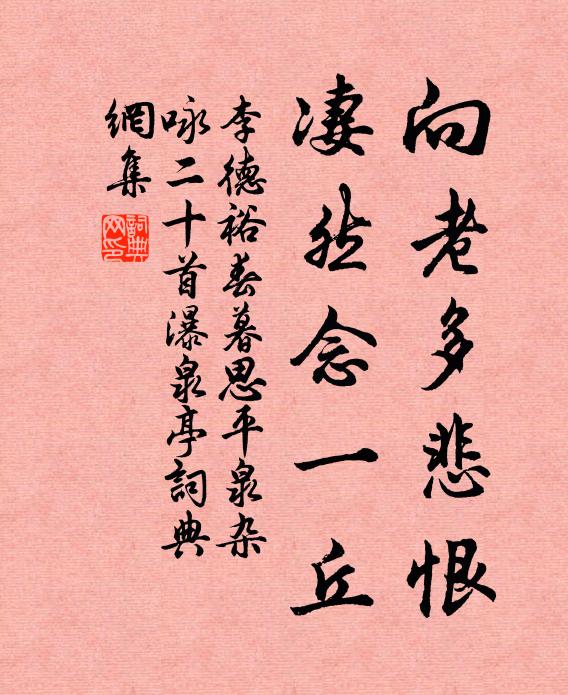 向老多悲恨
凄然念一丘
李德裕春暮思平泉杂
咏二十首瀑泉亭詞典
網集
詞典
网印